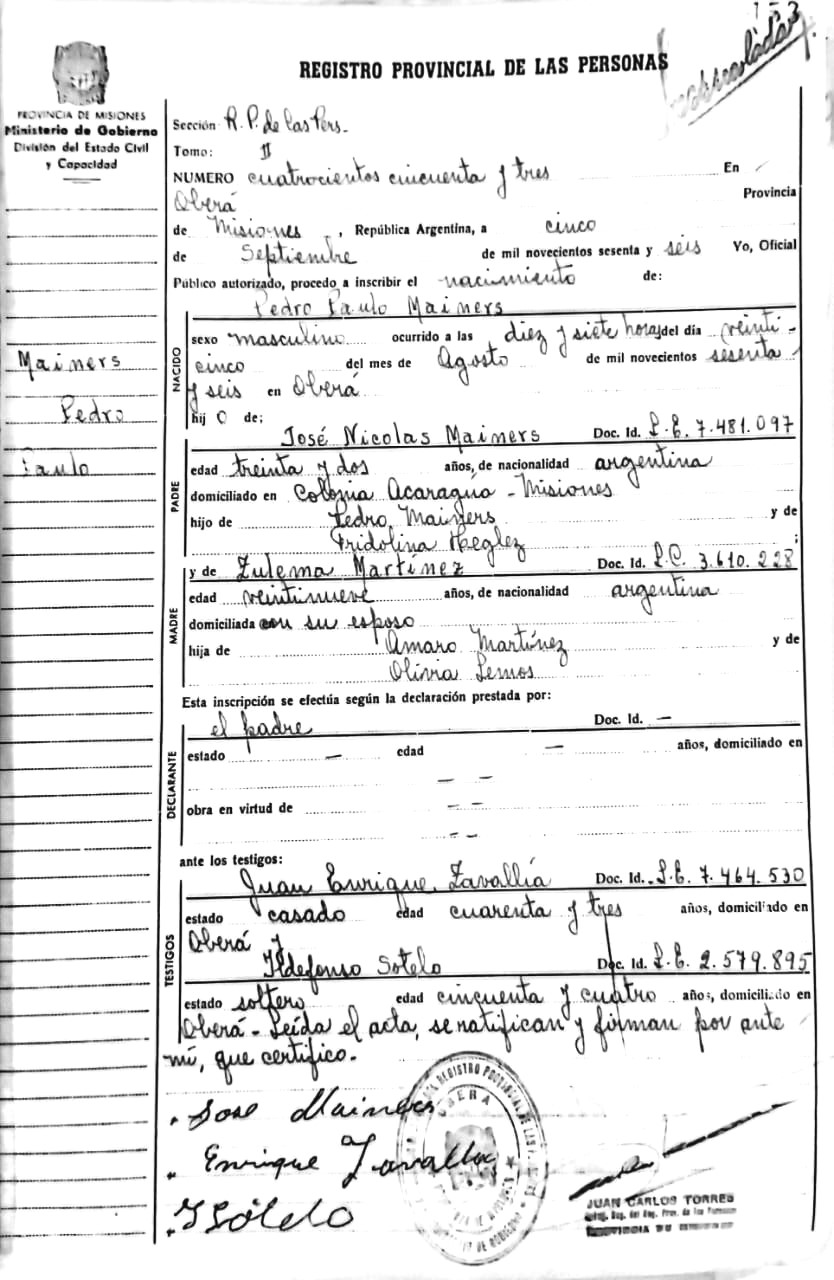 153
REGISTRO PROVINCIAL DE LAS PERSONAS
PROVINCIA DE MISIONES
Ministerio de Gobierno
División del Estado Civil
y Capacidad
Mainers
Pedro
Paulo
Sección R.P. de las Pers.
Tomo: II
NUMERO cuatrocientos cincuenta y tres En
Oberá Provincia
de Misiones, República Argentina, a cinco
de Septiembre de mil novecientos sesenta y seis Yo, Oficial
Público autorizado, procedo a inscribir el nacimiento de:
Pedro Paulo Mainers
NACIDO
sexo masculino ocurrido a las diez y siete horas del día veinti-
cinco del mes de Agosto de mil novecientos sesenta
y seis en Oberá
hij o de:
José Nicolas Mainers Doc. Id. L.E. 7.481.097
PADRE
edad treinta y dos años, de nacionalidad argentina
domiciliado en Colonia Acaragua - Misiones
hijo de Pedro Mainers y de
Fridolina Heglez ;
y de Zulema Martínez Doc. Id. L.C. 3.610.228
MADRE
edad veintinueve años, de nacionalidad argentina
domiciliada con su esposo
hija de Amaro Martínez y de
Olivia Lemos
Esta inscripción se efectúa según la declaración prestada por:
el padre Doc. Id. —
DECLARANTE
estado — edad — años, domiciliado en
— —
obra en virtud de — —
— —
ante los testigos:
Juan Enrique Zavallía Doc. Id. L.E. 7.464.530
TESTIGOS
estado casado edad cuarenta y tres años, domiciliado en
Oberá y
Ildefonso Sotelo Doc. Id. L.E. 2.579.895
estado soltero edad cincuenta y cuatro años, domiciliado en
Oberá - Leída el acta, se ratifican y firman por ante
mí, que certifico.
Jose Mainers
Enrique Zavallía
I Sótelo
REGISTRO PROVINCIAL DE LAS
OBERA
JUAN CARLOS TORRES